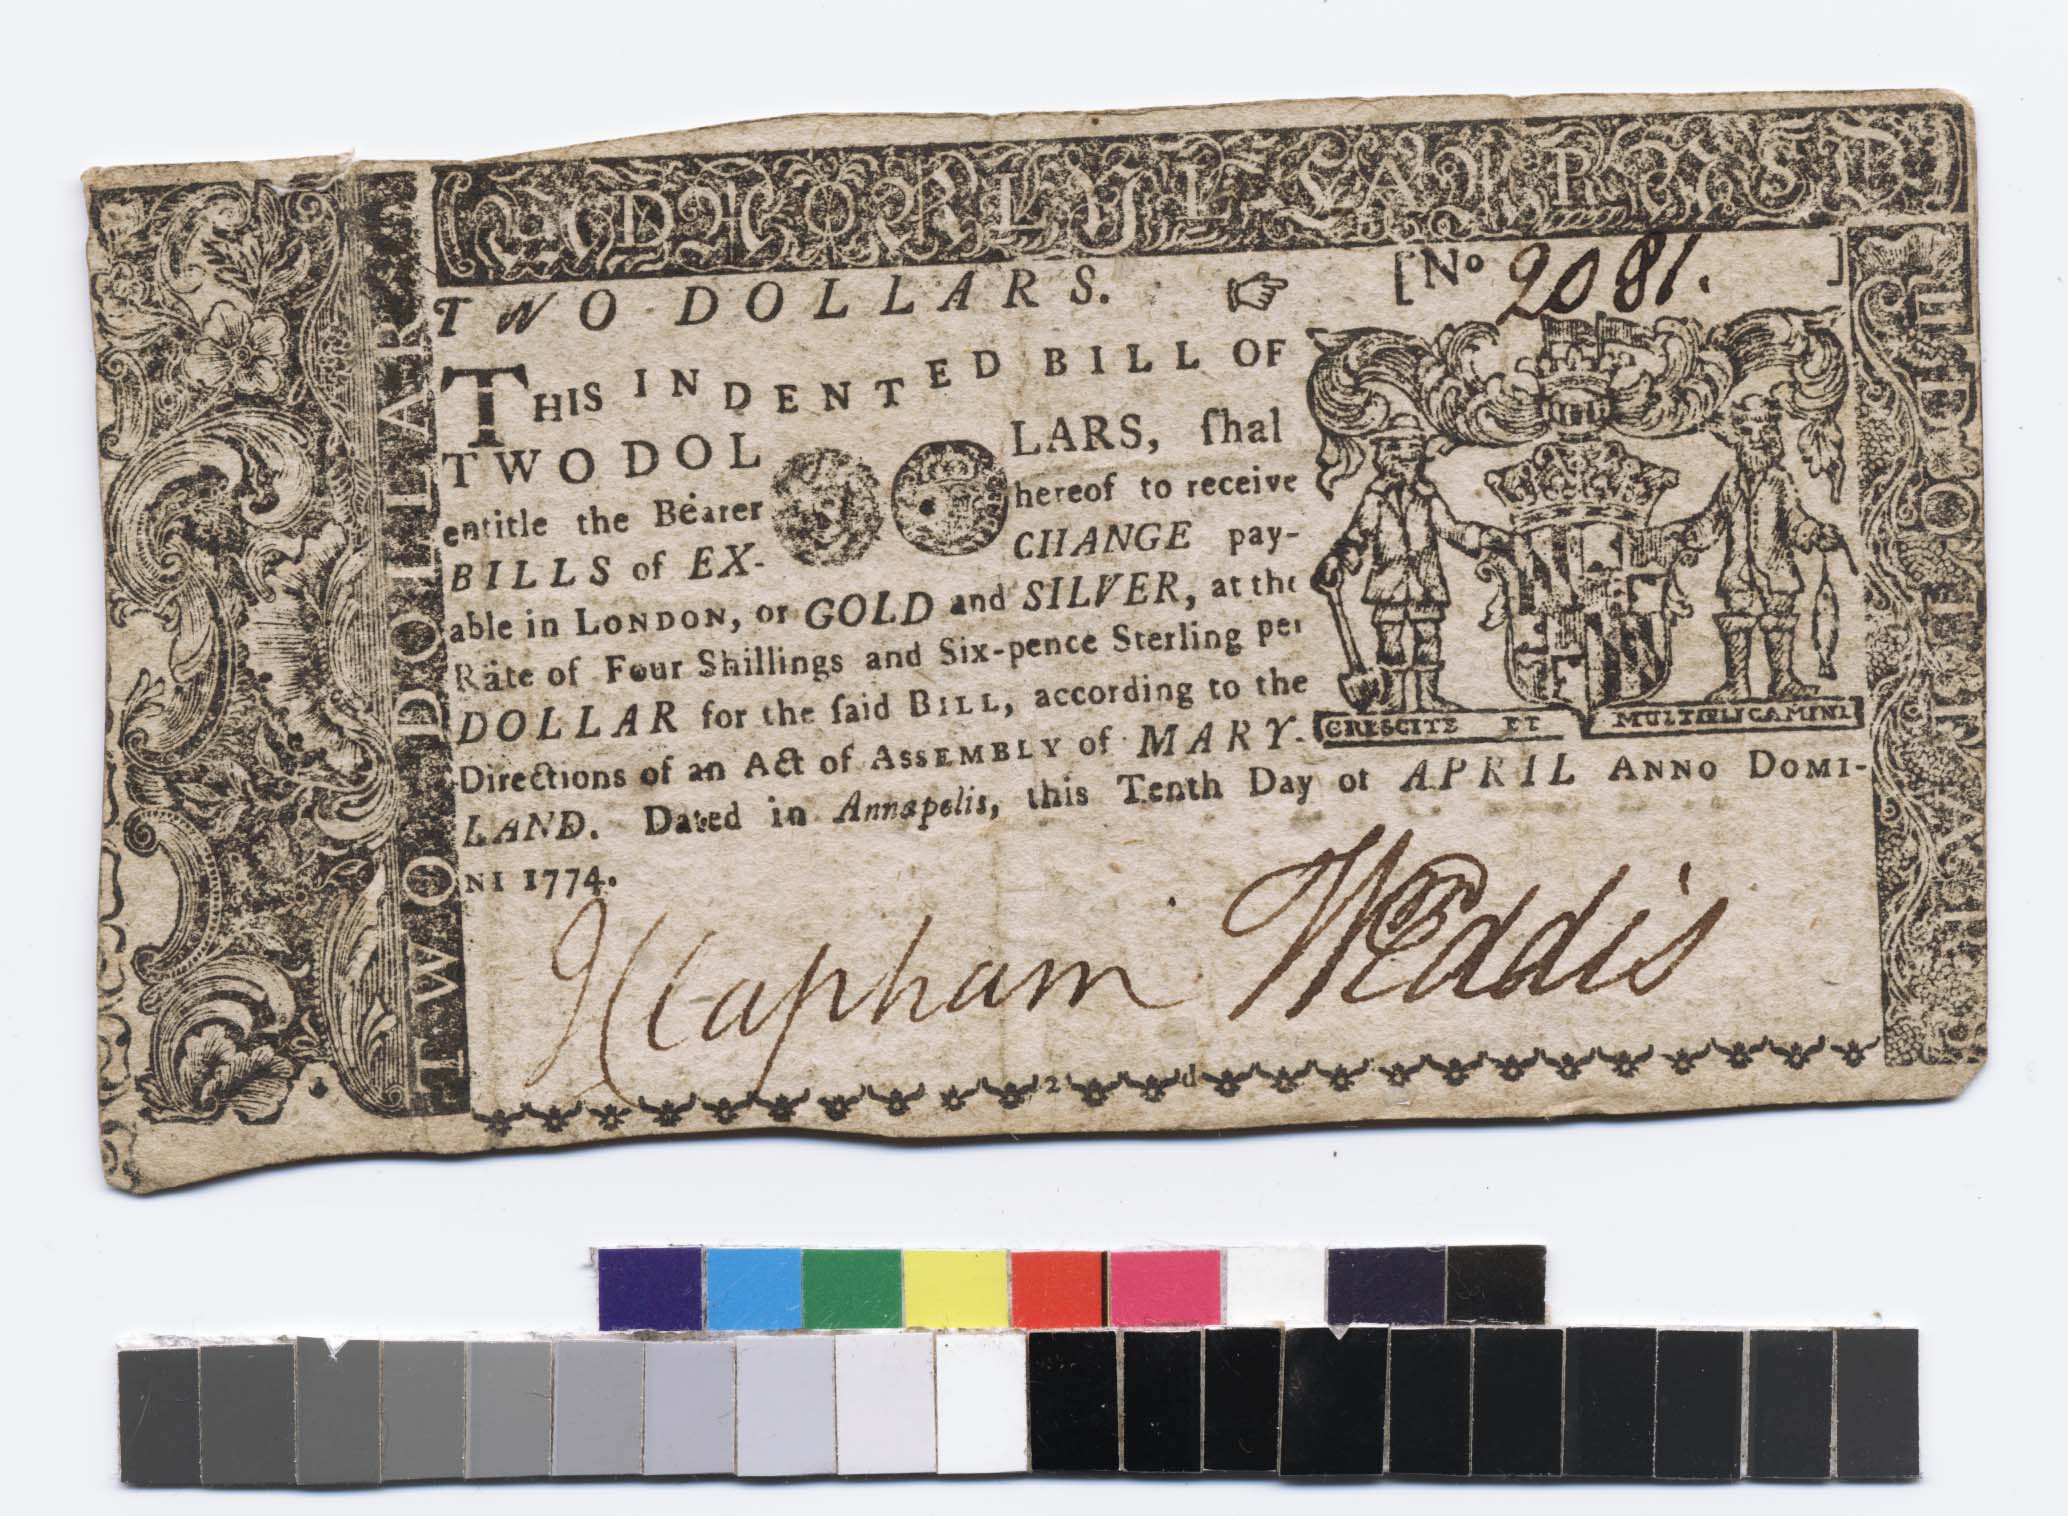 TWO DOLLARS. [No 2081.]
THIS INDENTED BILL OF
TWO DOL LARS, ſhal
entitle the Bearer hereof to receive
BILLS of EX- CHANGE pay-
able in LONDON, or GOLD and SILVER, at the
Rate of Four Shillings and Six-pence Sterling per
DOLLAR for the ſaid BILL, according to the
Directions of an Act of ASSEMBLY of MARY-
LAND. Dated in Annapolis, this Tenth Day of APRIL ANNO DOMI-
NI 1774.
CRESCITE ET MULTIPLICAMINI
JClapham WEddis
2 d
TWO DOLLAR